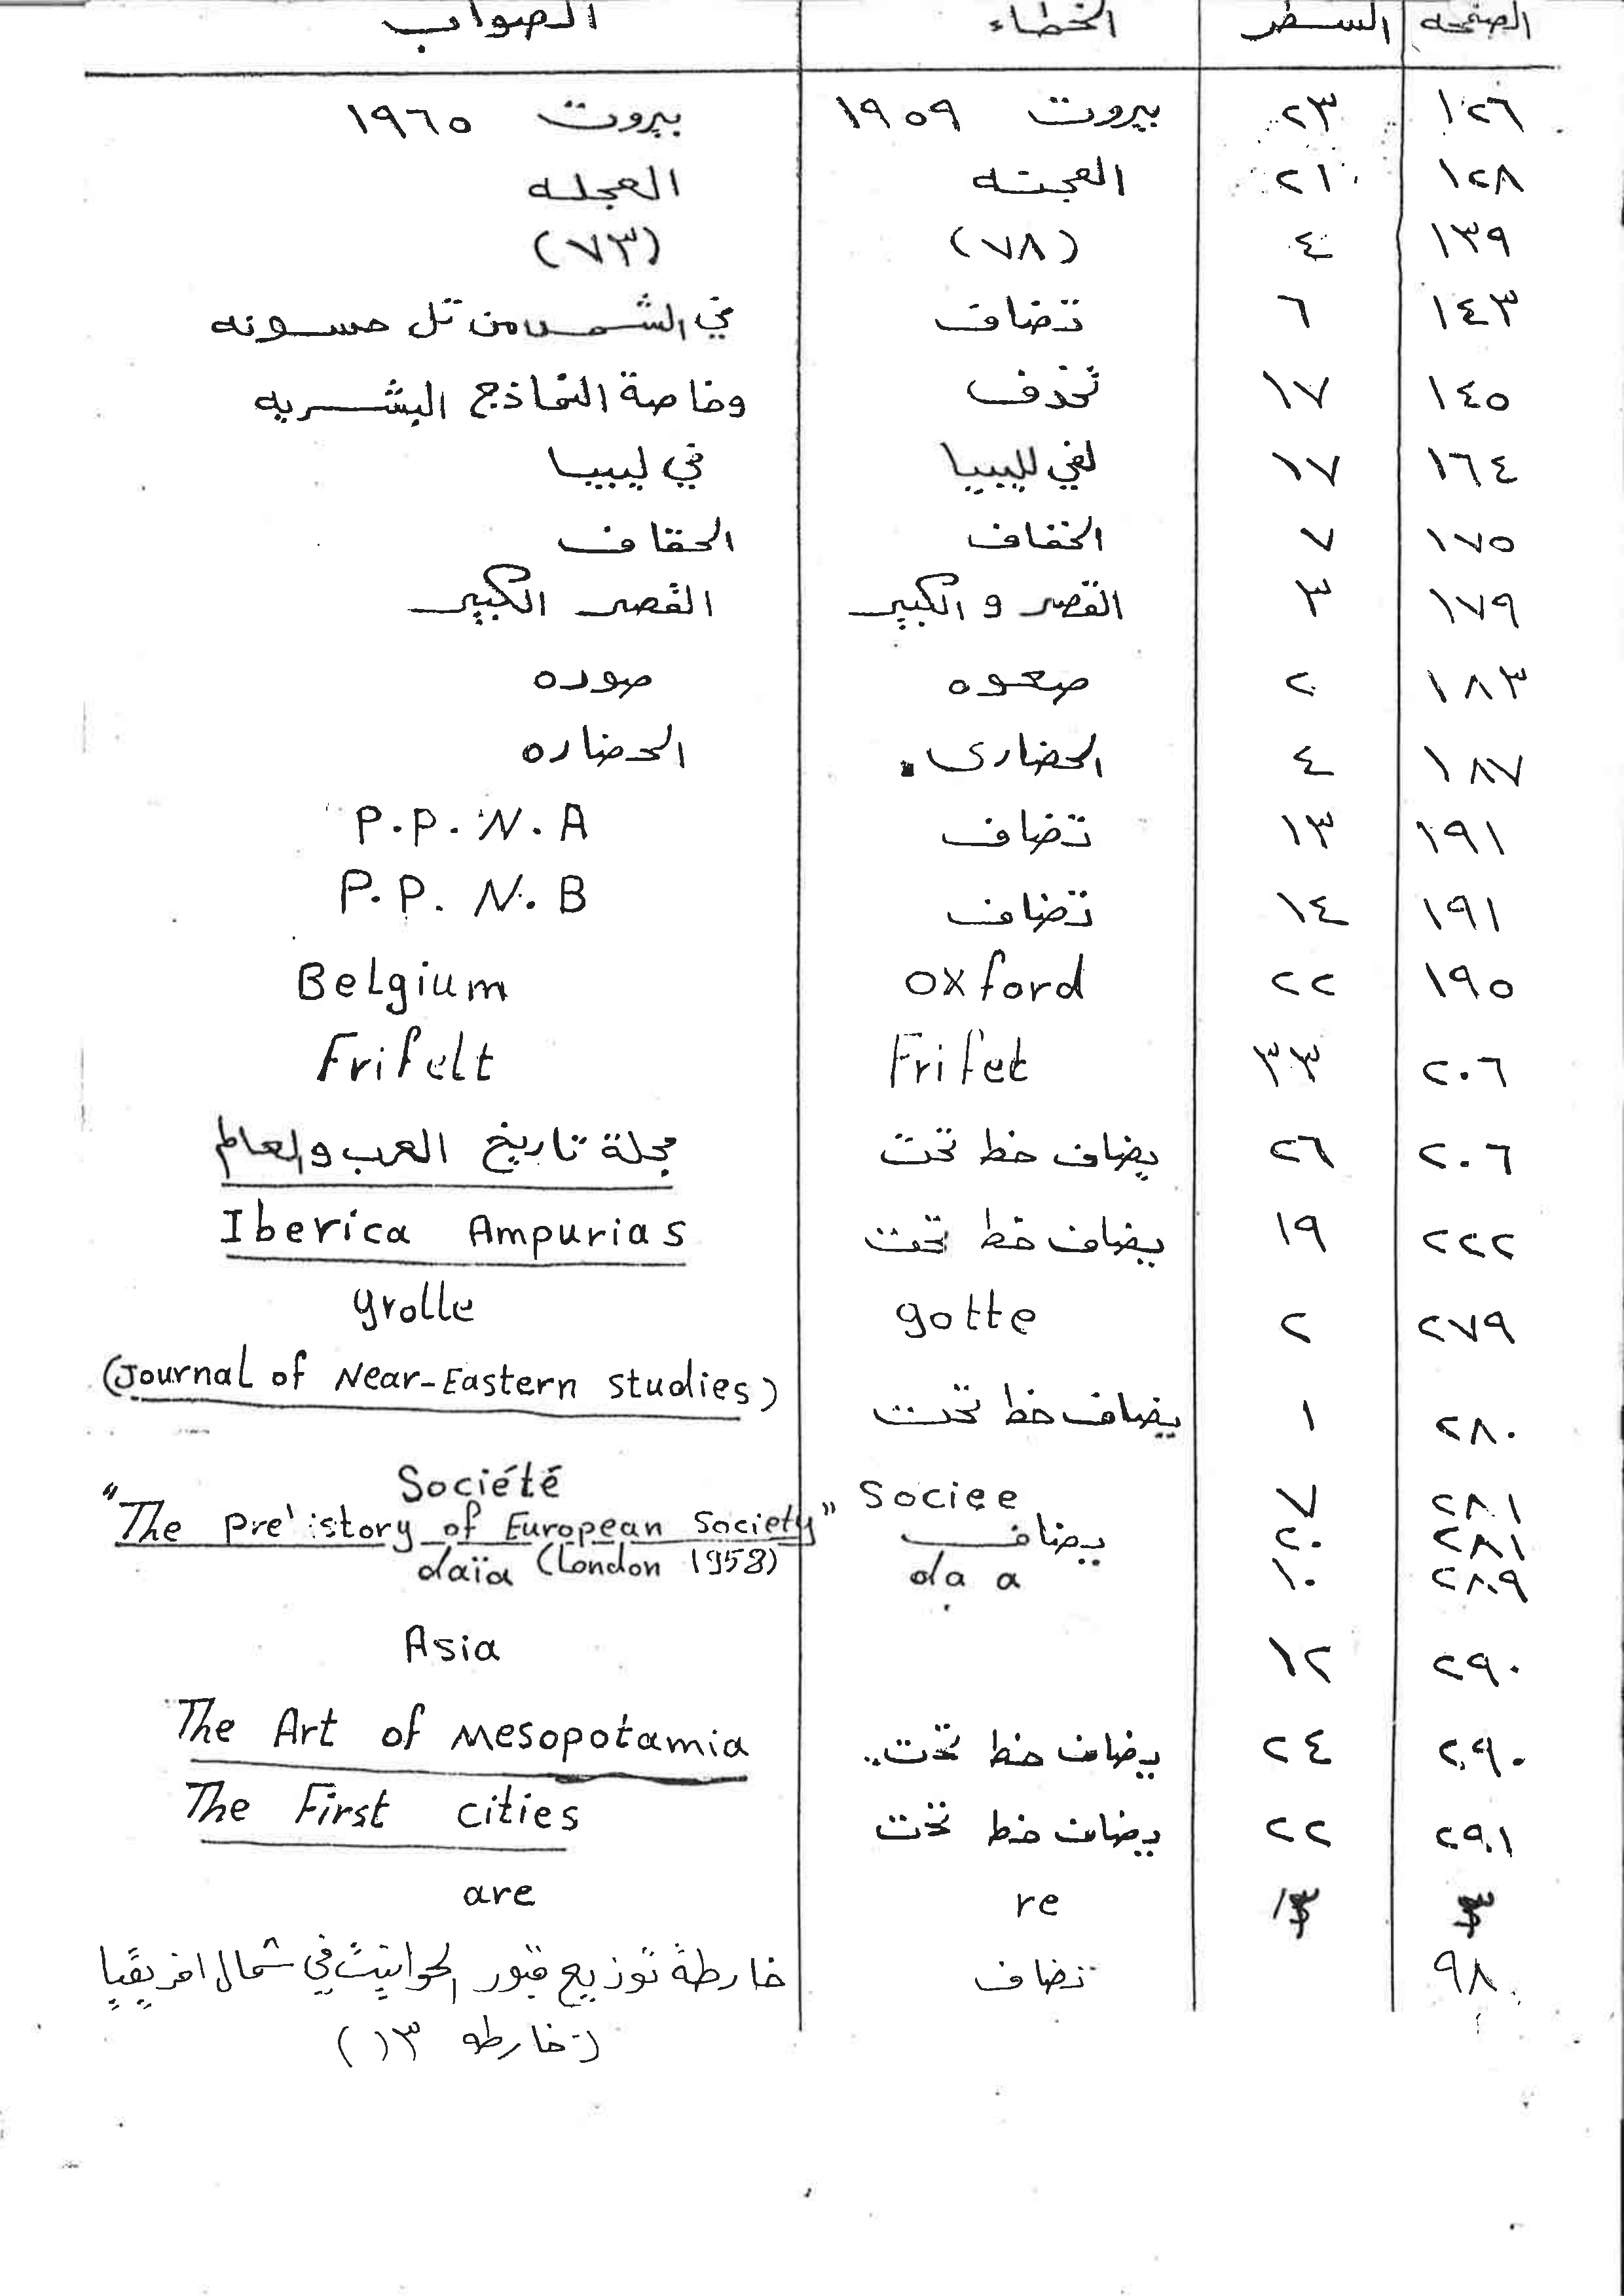 الصفحه السطر الخطاء الصواب
١٢٦ ٢٣ بيروت ١٩٥٩ بيروت ١٩٦٥
١٢٨ ٢١ العجته العجله
١٣٩ ٤ (٧٨) (٧٣)
١٤٣ ٦ تضاف في من تل حسونه
١٤٥ ١٧ تحذف وخاصة النماذج البشريه
١٦٤ ١٧ لفي للييبيا في ليبيا
١٧٥ ٧ الخفاف الحقاف
١٧٩ ٣ القصر و الكبير القصر الكبير
١٨٣ ٢ صعوه صوره
١٨٧ ٤ الحضارى الحضاره
١٩١ ١٣ تضاف P.P.N.A
١٩١ ١٤ تضاف P.P.N.B
١٩٥ ٢٢ oxford Belgium
٢٠٦ ٢٣ Frifet Frifelt
٢٠٦ ٢٦ يضاف خط تحت مجلة تاريخ العرب والعالم
٢٢٢ ١٩ يضاف خط تحت Iberica Ampurias
٢٧٩ ٢ gotte grolle
٢٨٠ ١ يضاف خط تحت (Journal of Near-Eastern studies)
٢٨١ ٧ Sociee Société
٢٨١ ٢٠ يضاف "The pre'istory of European Society" (London 1958)
٢٨٩ ١٠ da a daïa
٢٩٠ ١٢ Asia
٢٩٠ ٢٤ يضاف خط تحت The Art of Mesopotamia
٢٩١ ٢٢ يضاف خط تحت The First cities
٣ ١٣ re are
٩٨ تضاف خارطة توزيع قبور الحوانيت في شمال افريقيا
(خارطه ١٣)